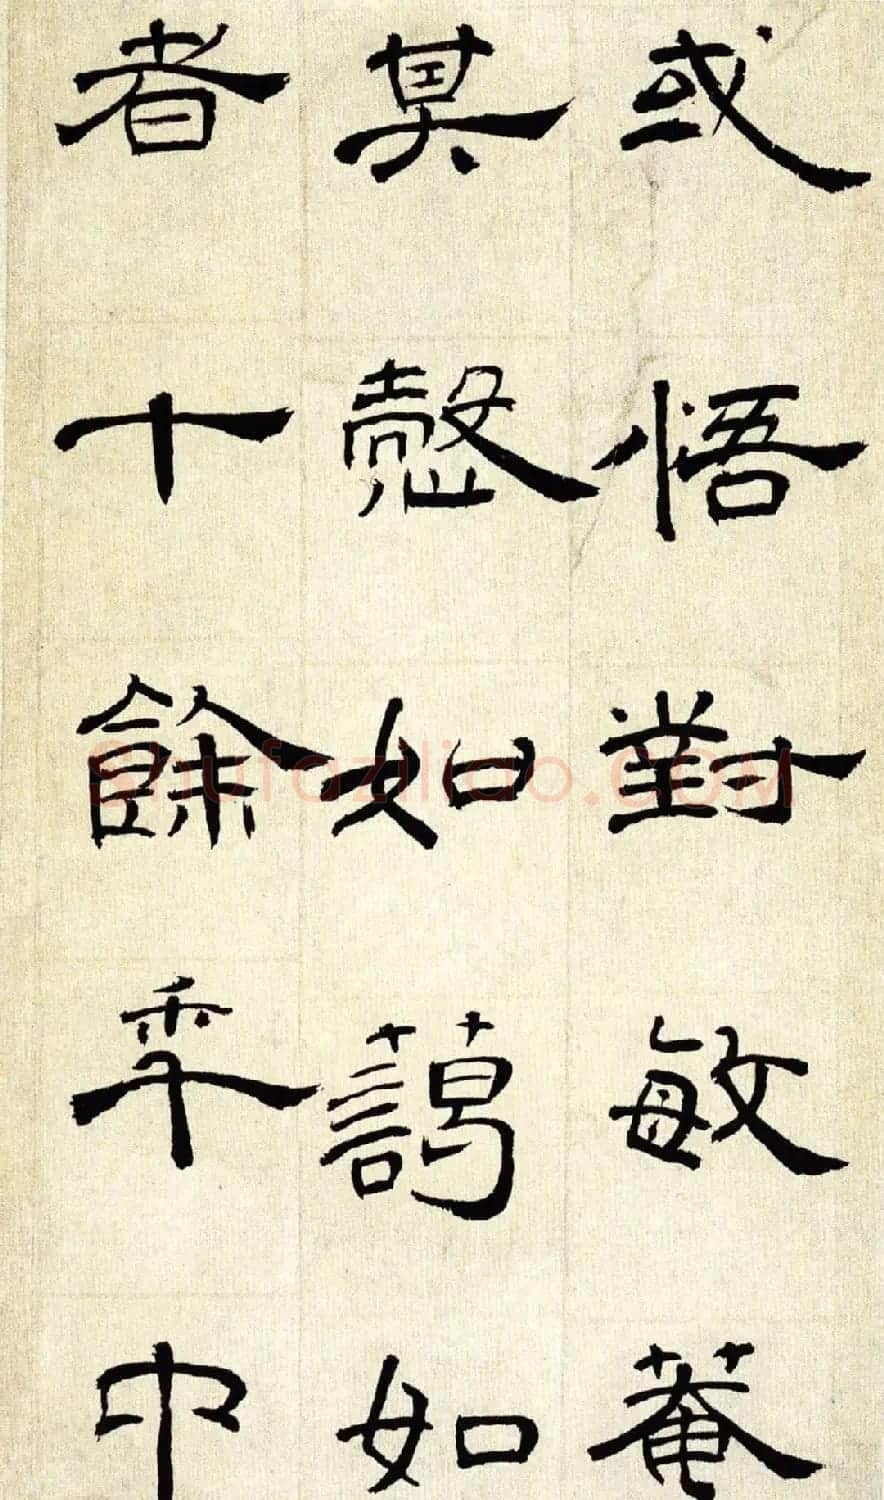 或悟對敏菴
其愨如藹如
者十餘秊中
Shufaziliao.COM